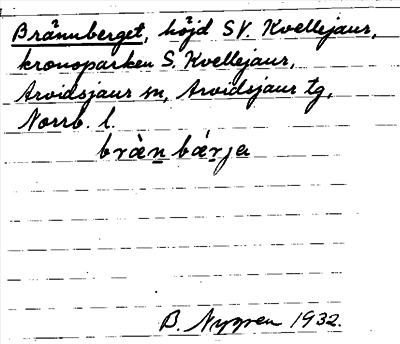 Brännberget, höjd SV. Kvellejaur,
kronoparken S. Kvellejaur,
Arvidsjaur sn, Arvidsjaur tg,
Norrb. l.
brànbárja
B. Nygren 1932.